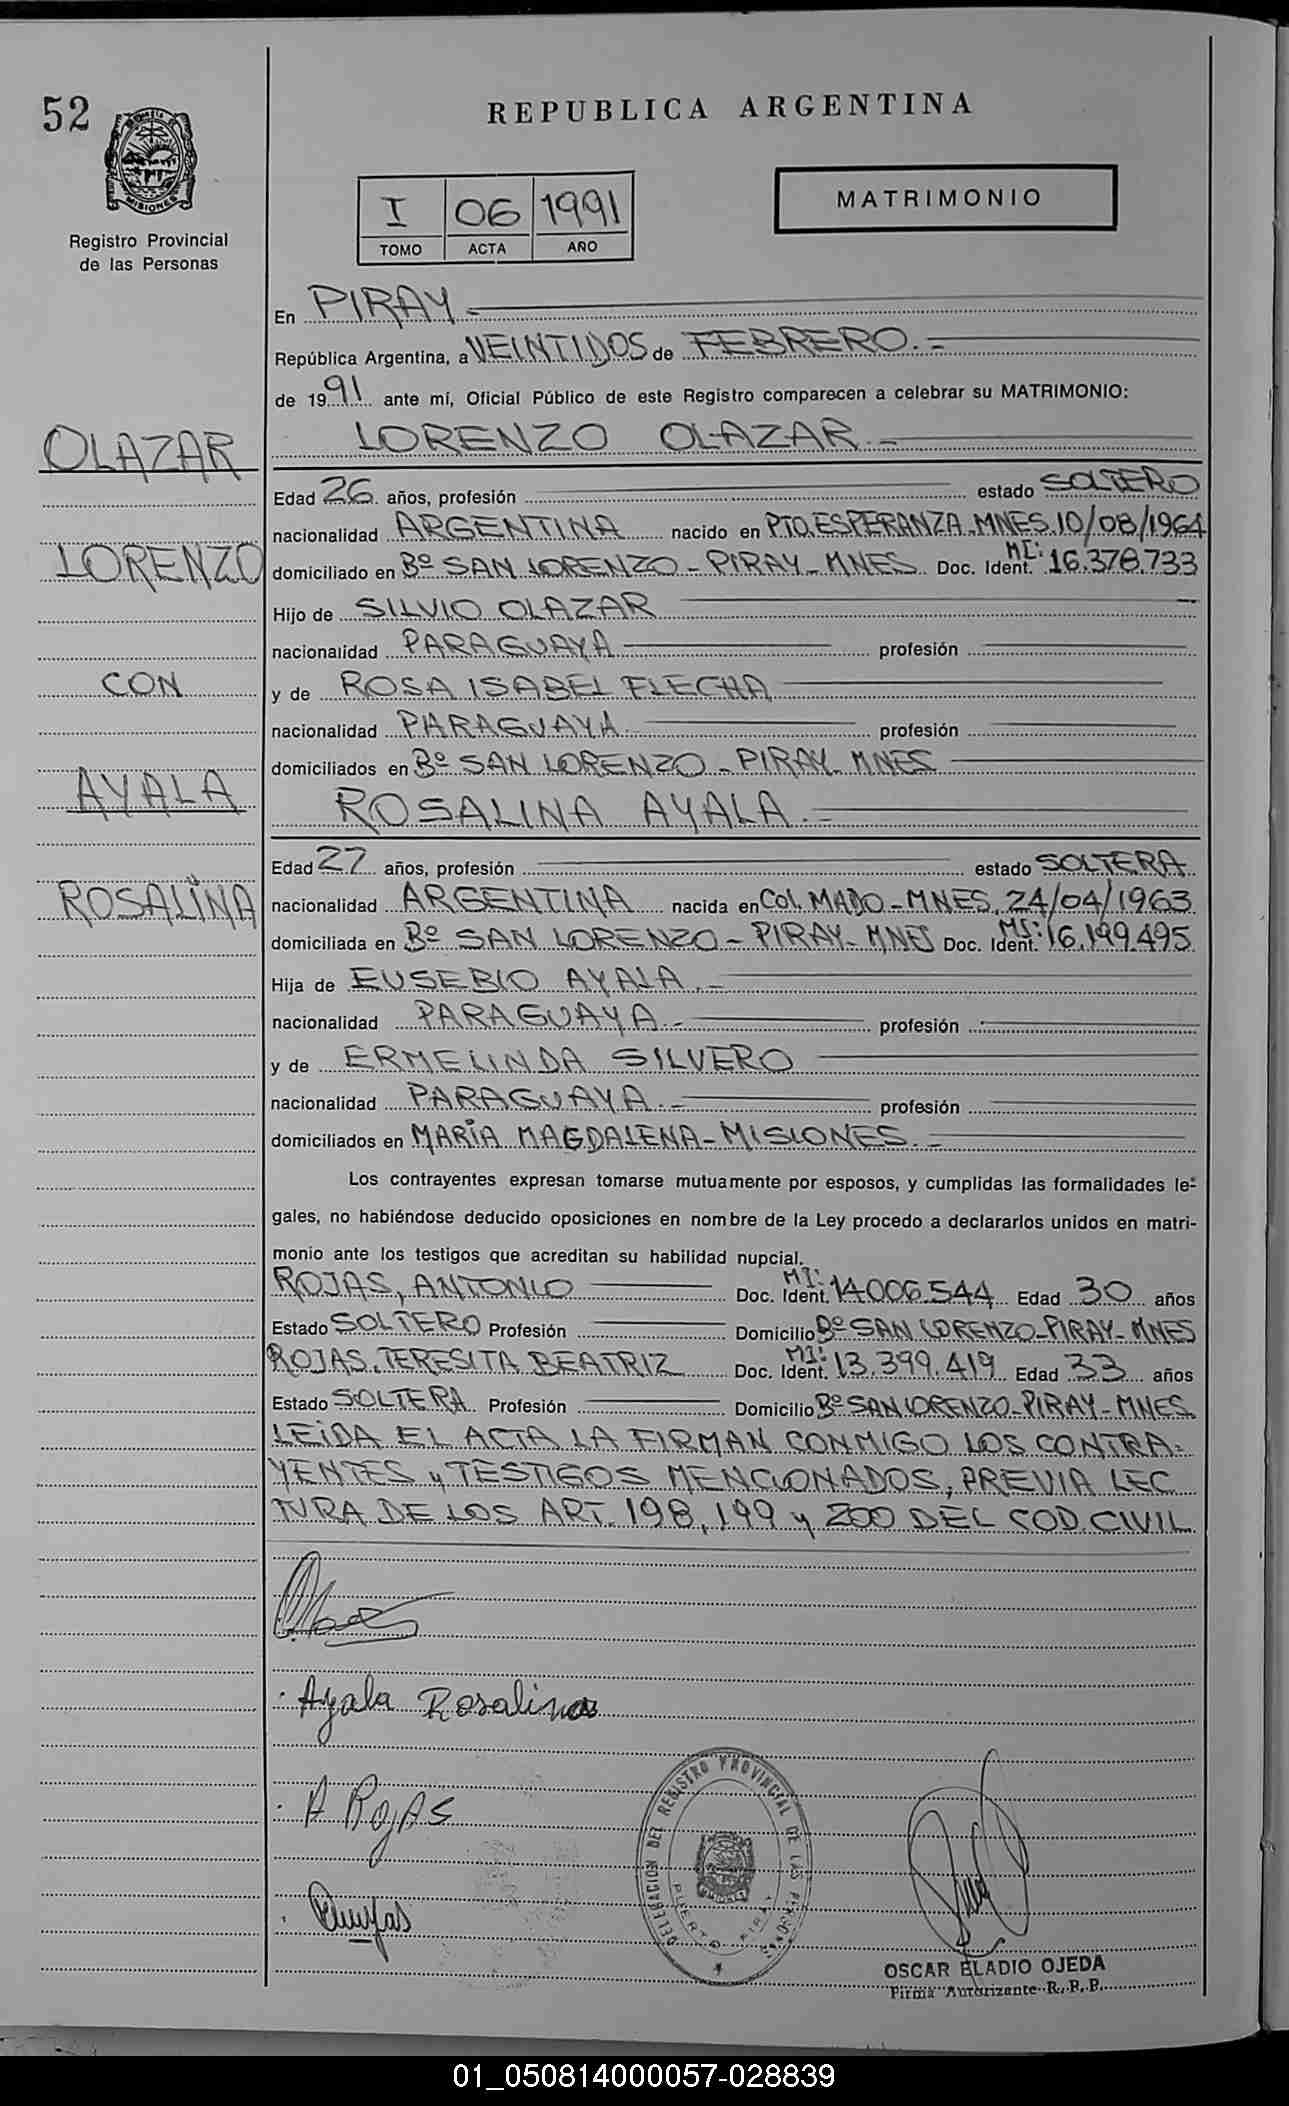 52
REPUBLICA ARGENTINA
MISIONES
Registro Provincial
de las Personas
I 06 1991
TOMO ACTA AÑO
MATRIMONIO
En PIRAY.-
República Argentina, a VEINTIDOS de FEBRERO.-
de 1991 ante mí, Oficial Público de este Registro comparecen a celebrar su MATRIMONIO:
LORENZO OLAZAR.-
OLAZAR
LORENZO
CON
AYALA
ROSALINA
Edad 26 años, profesión estado SOLTERO
nacionalidad ARGENTINA nacido en PTO.ESPERANZA.MNES.10/08/1964
domiciliado en Bº SAN LORENZO-PIRAY-MNES. Doc. Ident. MI: 16.378.733
Hijo de SILVIO OLAZAR
nacionalidad PARAGUAYA profesión
y de ROSA ISABEL FLECHA
nacionalidad PARAGUAYA. profesión
domiciliados en Bº SAN LORENZO-PIRAY-MNES
ROSALINA AYALA.-
Edad 27 años, profesión estado SOLTERA
nacionalidad ARGENTINA nacida en COL. MADO-MNES. 24/04/1963
domiciliada en Bº SAN LORENZO-PIRAY-MNES Doc. Ident. MI: 16.199.495
Hija de EUSEBIO AYALA.-
nacionalidad PARAGUAYA.- profesión
y de ERMELINDA SILVERO
nacionalidad PARAGUAYA.- profesión
domiciliados en MARÍA MAGDALENA-MISIONES.-
Los contrayentes expresan tomarse mutuamente por esposos, y cumplidas las formalidades le-
gales, no habiéndose deducido oposiciones en nombre de la Ley procedo a declararlos unidos en matri-
monio ante los testigos que acreditan su habilidad nupcial.
ROJAS, ANTONIO Doc. Ident. MI: 14.006.544 Edad 30 años
Estado SOLTERO Profesión Domicilio Bº SAN LORENZO-PIRAY-MNES
ROJAS, TERESITA BEATRIZ Doc. Ident. MI: 13.399.419 Edad 33 años
Estado SOLTERA Profesión Domicilio Bº SAN LORENZO-PIRAY-MNES
LEIDA EL ACTA LA FIRMAN CONMIGO LOS CONTRA-
YENTES y TESTIGOS MENCIONADOS, PREVIA LEC
TURA DE LOS ART. 198, 199 y 200 DEL COD. CIVIL
Ayala Rosalina
A Rojas
DELEGACION DEL REGISTRO PROVINCIAL DE LAS PERSONAS
PUERTO PIRAY
OSCAR ELADIO OJEDA
Firma Autorizante R.P.P.
01_050814000057-028839